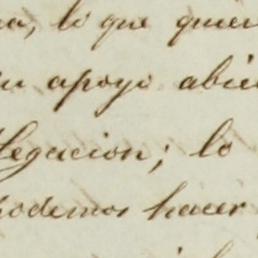 lo que quier
apoyo abie
legacion; lo
podemos hacer